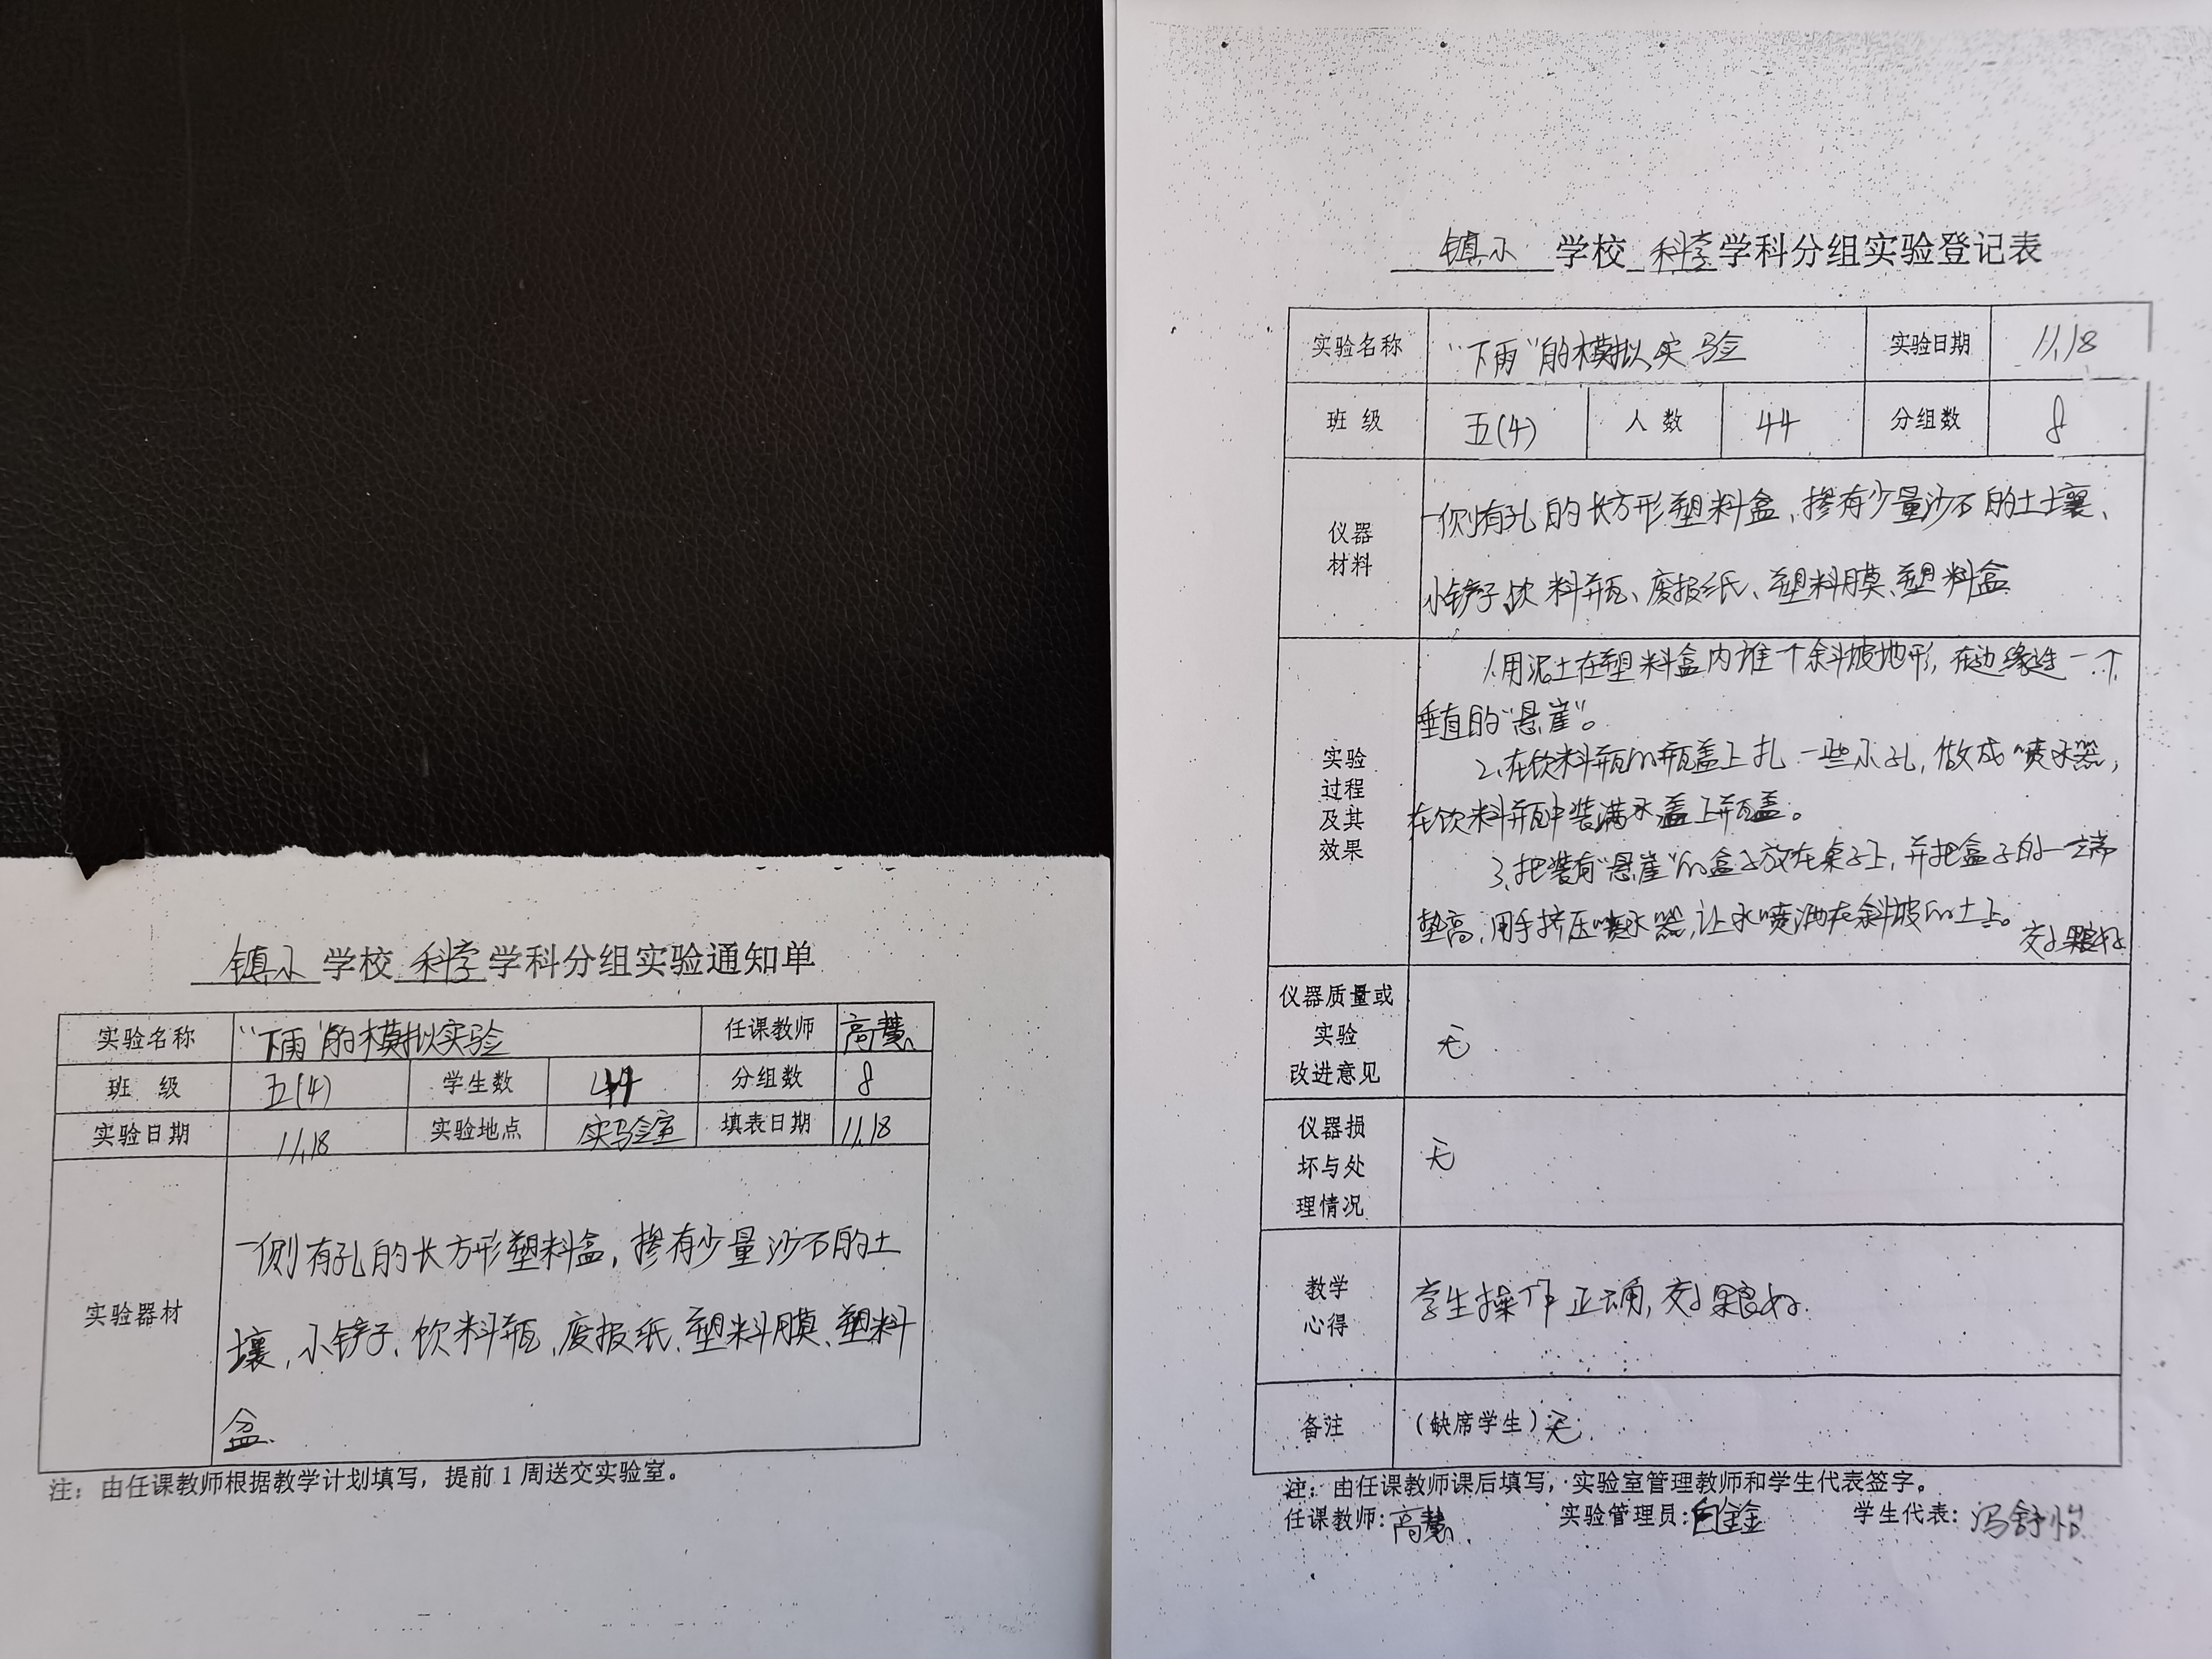 镇小 学校 科学 学科分组实验通知单
实验名称 “下雨”的模拟实验 任课教师 高慧
班 级 五(4) 学生数 44 分组数 8
实验日期 11.18 实验地点 实验室 填表日期 11.18
实验器材
一侧有孔的长方形塑料盒，掺有少量沙石的土
壤、小铲子、饮料瓶、废报纸、塑料膜、塑料
盆.
注：由任课教师根据教学计划填写，提前1周送交实验室。
镇小 学校 科学 学科分组实验登记表
实验名称 “下雨”的模拟实验 实验日期 11.18
班 级 五(4) 人 数 44 分组数 8
仪器
材料
一侧有孔的长方形塑料盒、掺有少量沙石的土壤、
小铲子、饮料瓶、废报纸、塑料膜、塑料盒
实验
过程
及其
效果
1.用泥土在塑料盒内堆个斜坡地形，在边缘造一个
垂直的“悬崖”。
2.在饮料瓶的瓶盖上扎一些小孔，做成“喷水器，
在饮料瓶中装满水盖上瓶盖。
3.把装有“悬崖”的盒子放在桌子上，并把盒子的一端
垫高，用手挤压喷水器，让水喷洒在斜坡的土上。
效果良好
仪器质量或
实验
改进意见
无
仪器损
坏与处
理情况
无
教学
心得
学生操作正确，效果良好.
备注 （缺席学生）无.
注：由任课教师课后填写，实验室管理教师和学生代表签字。
任课教师：高慧. 实验管理员： 学生代表：冯舒怡